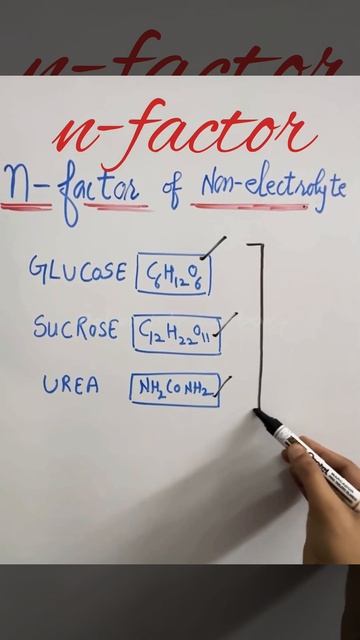 n-factor
n-factor
n-factor of Non-electrolyte
GLUCOSE C6H12O6
SUCROSE C12H22O11
UREA NH2CONH2